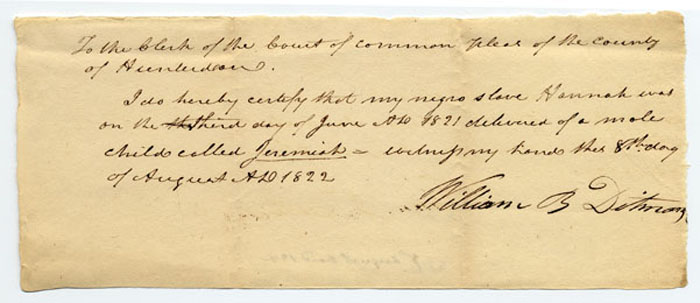 To the Clerk of the Court of common pleas of the county
of Hunterdon.
I do hereby certify that my negro slave Hannah was
on the third day of June AD 1821 delivered of a male
child called Jeremiah = witness my hand this 8th day
of August AD 1822
William B Ditmars